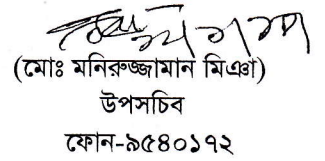 (মোঃ মনিরুজ্জামান মিঞা)
উপসচিব
ফোন-৯৫৪০১৭২